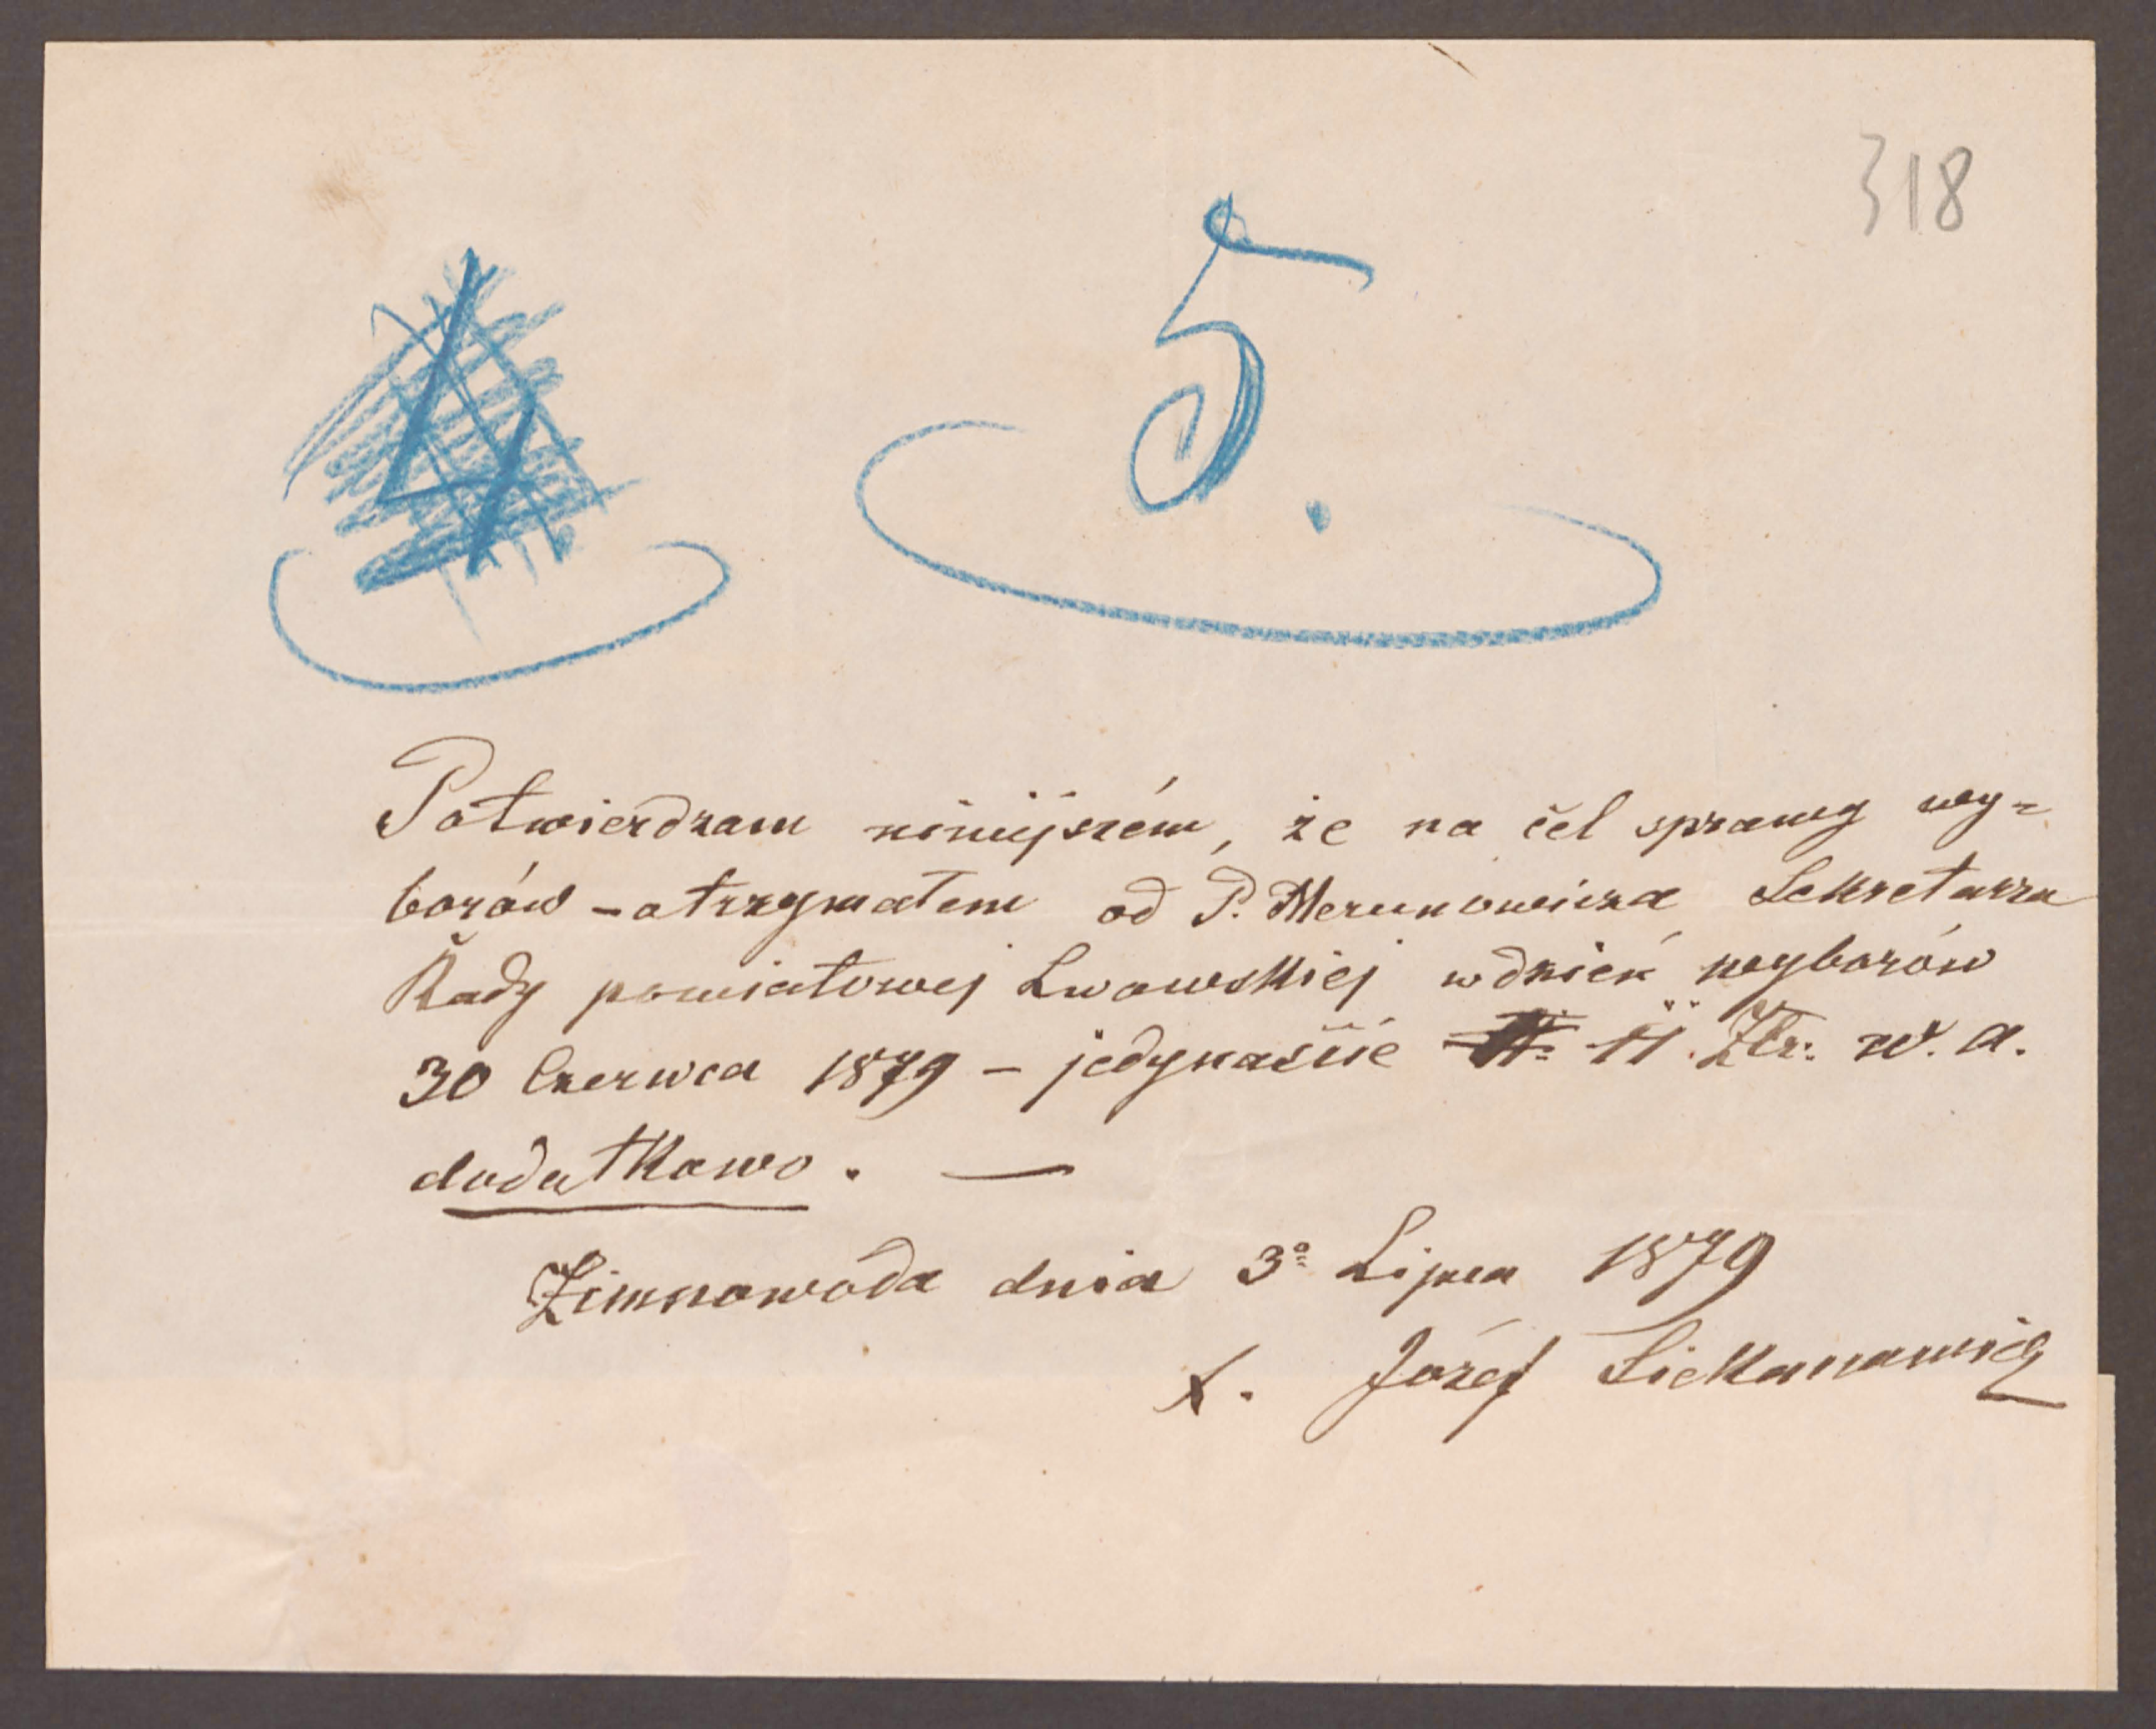 318
5.
Potwierdzam niniejszém, że na cel sprawy wy=
borów – otrzymałem od P. Merunowicza Sekretarza
Rady powiatowej Lwowskiéj w dzień wyborów
30 Czerwca 1879 – jedynaście 11. Złr. w. a.
dodatkowo. —
Zimnowóda dnia 3º Lipca 1879
X. Józéf